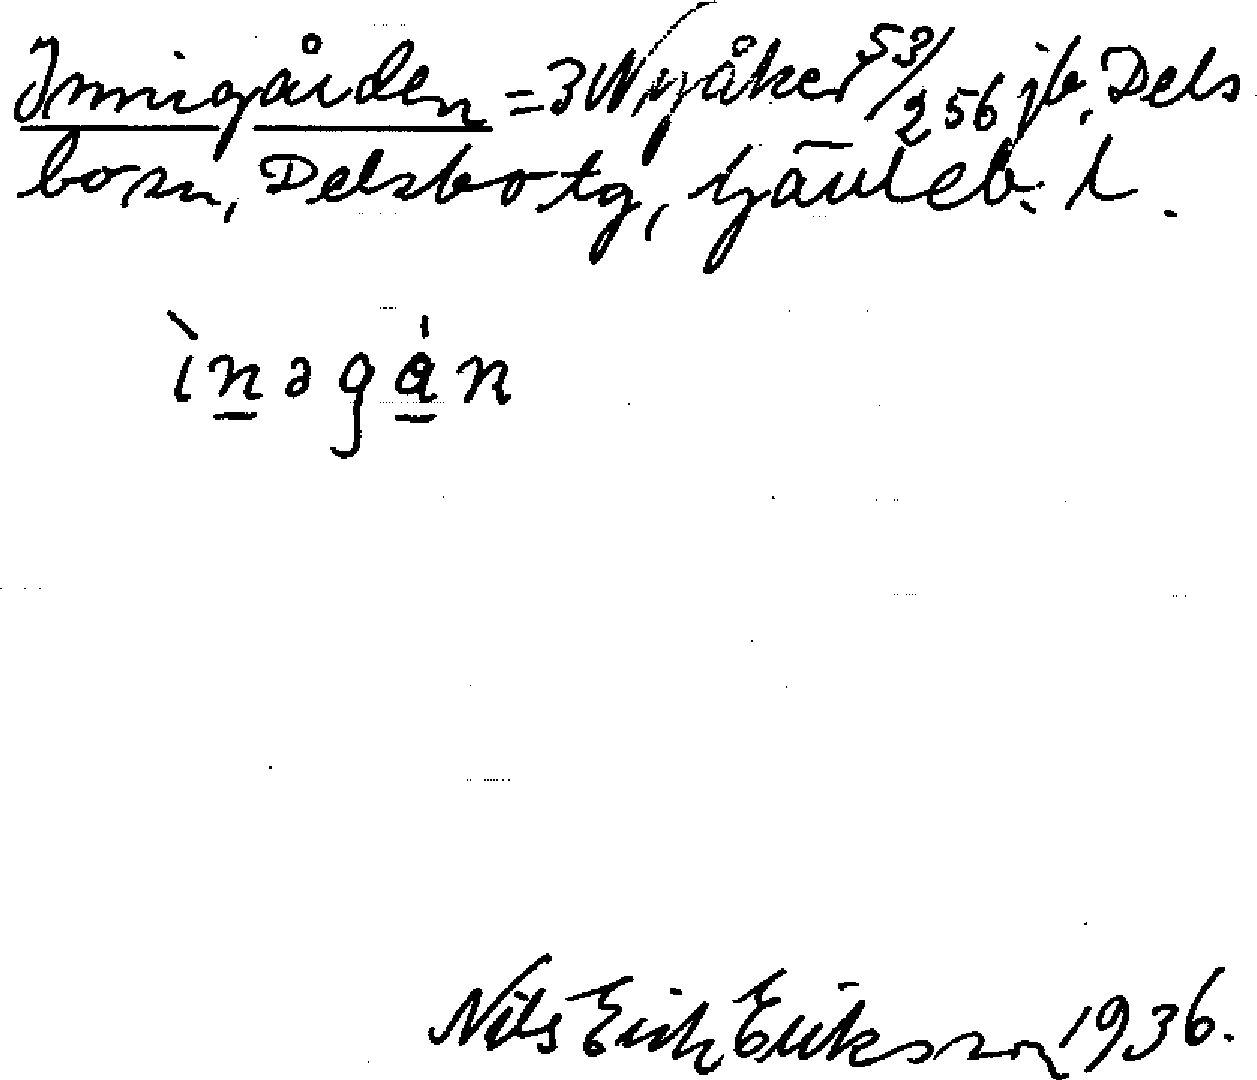 Innigården = 3 Nyåker 53/256 jb. Dels
bo sn, Delsbo tg, Gävleb. l.
ìnəgån
Nils Erik Eriksson 1936.